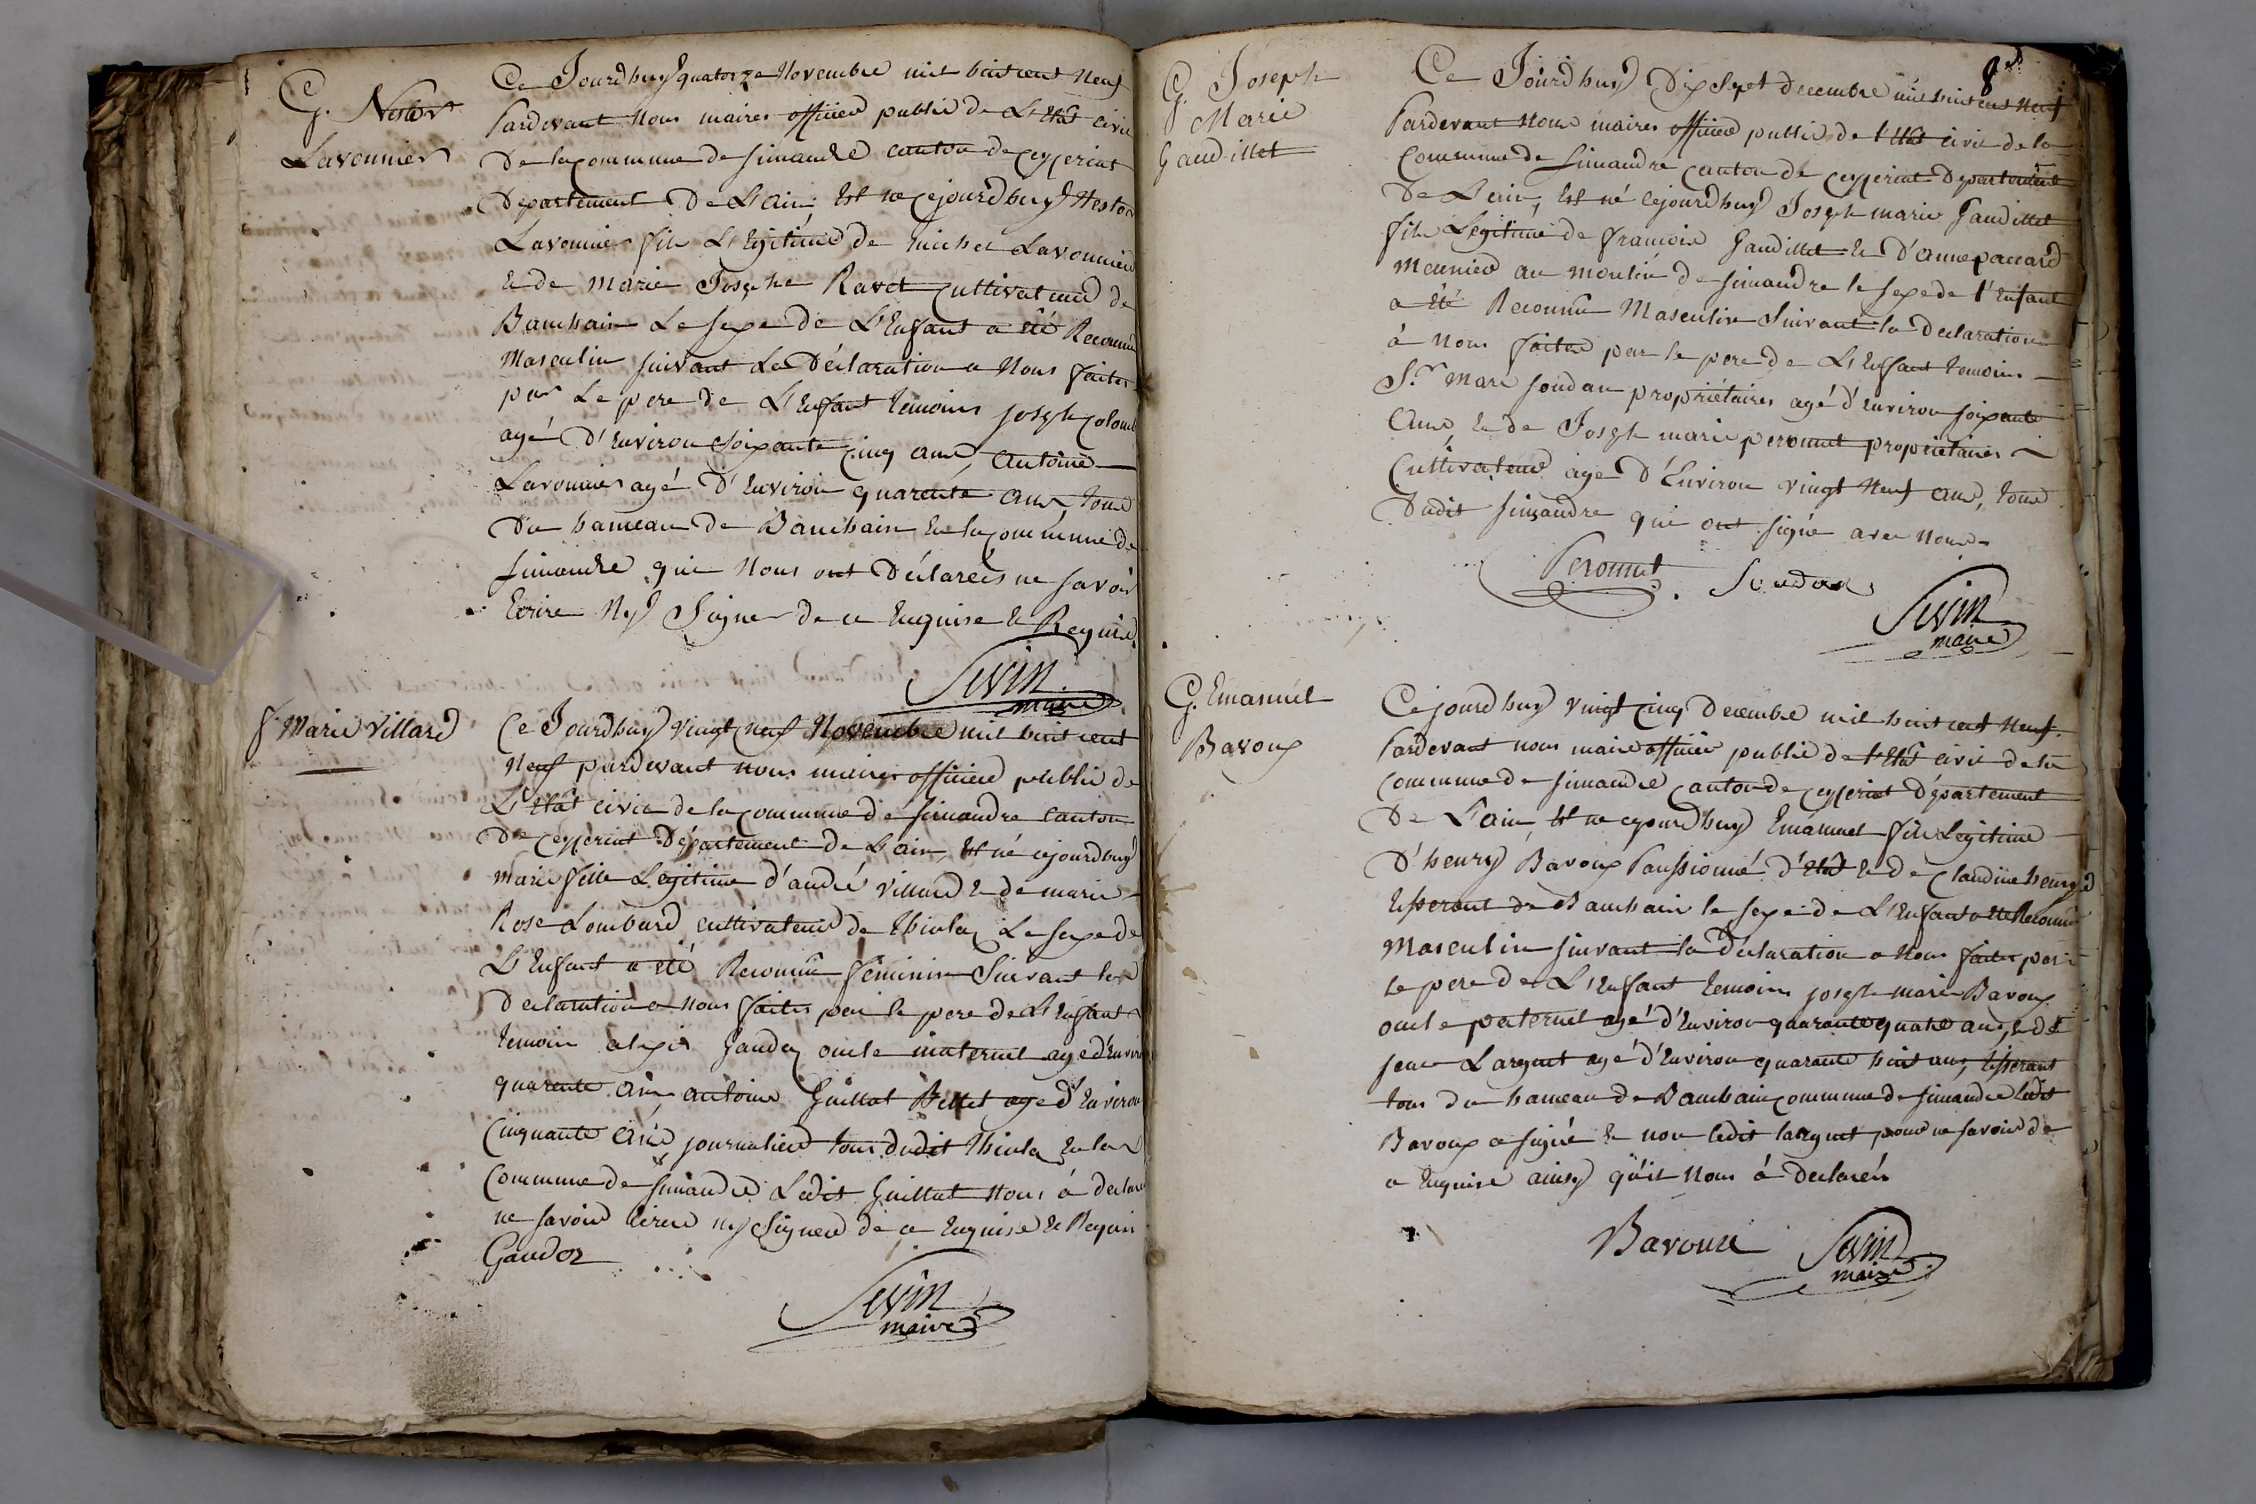 G. Nestor
Lavonnier
Ce Jourd'huy quatorze Novembre mil huit cent Neuf
Pardevant Nous maires officier public de L'Etat civil
De la commune de simandre canton de ceyzeriat
Département De L'ain, Est né cejourd'huy Nestor
Lavonnier fils Légitime de michel Lavonnier
Et de marie Josephe Ravet cultivateur de
Banchain Le sexe de L'Enfant a été Reconnu
Masculin suivant La Déclaration a Nous faites
par Le pere de L'Enfant temoins joseph colomb
agé D'Environ soixante cinq ans, Antoine
Lavonnier agé D'Environ quarente ans tous
Du hameau de Banchain En la commune de
simandre qui Nous ont Déclarées ne savoir
Ecrire Ny Signer de ce Enquise et Requise
Sevin
maire
f. Marie Villard
Ce Jourd'huy vingt neuf Novembre mil huit cent
Neuf pardevant nous maires officier public de
L'Etat civil de la commune de simandre canton
De ceyzeriat Département de L'ain, Est né cejourd'huy
marie fille Légitime d'andré villard et de marie
Rose Lombard cultivateur de thiola Le sexe de
L'Enfant a été Reconnu féminin Suivant la
Déclaration a nous faites par le pere de L'Enfant
temoin alexis Gaudoz oncle maternel agé d'Environ
quarente ans, antoine Guillot Billet agé d'Environ
cinquante ans journalier tous dudit thiola En la
Commune de simandre Ledit Guillot Nous à déclaré
ne savoir Ecrire ny Signer de ce Enquise et Requis
Gaudoz
Sevin
maire
8
G. Joseph
Marie
Gaudillet
Ce Jourd'huy Dix Sept decembre mil huit cent neuf
Pardevant Nous maires officier public de l'Etat civil de la
Commune de Simandre canton de ceyzeriat Département
De L'ain, Est né cejourd'huy Joseph marie Gaudillet
fils Légitime de francois Gaudillet et D'anne pacard
Meunier au moulin de simandre le sexe de l'Enfant
a été Reconnu Masculin Suivant la déclaration
à Nous faites par le pere de L'Enfant temoins
S.r Marc soudan propriétaires agé d'Environ soixante
ans et de Joseph marie peronnet propriétaires
Cultivateur agé D'Environ vingt Neuf ans, tous
Dudit simandre qui ont signé avec Nous
Peronnet . Soudan
Sevin
maire
G. Emanuel
Bavoux
Ce jourd'huy vingt cinq Decembre mil huit cent Neuf
Pardevant nous maire officier public de l'Etat civil de la
commune de simandre canton de ceyzeriat Département
De L'ain, Est né cejourd'huy Emanuel fils Légitime
D'henry Bavoux Panssionné d'Etat et de claudine henry
tisserant de Banchain le sexe de L'Enfant a été Reconnu
Masculin suivant la déclaration a Nous faites par
le pere de L'Enfant temoins joseph marie Bavoux
oncle paternel agé d'Environ quarante quatre ans, et de
jean Larguet agé d'Environ quarante huit ans, tisserant
tous du hameau de Banchain commune de simandre ledit
Bavoux a signé et non ledit larguet, pour ne savoir de
ce Enquise ainsy qu'il Nous à declaréés
Bavoux
Sevin
maire